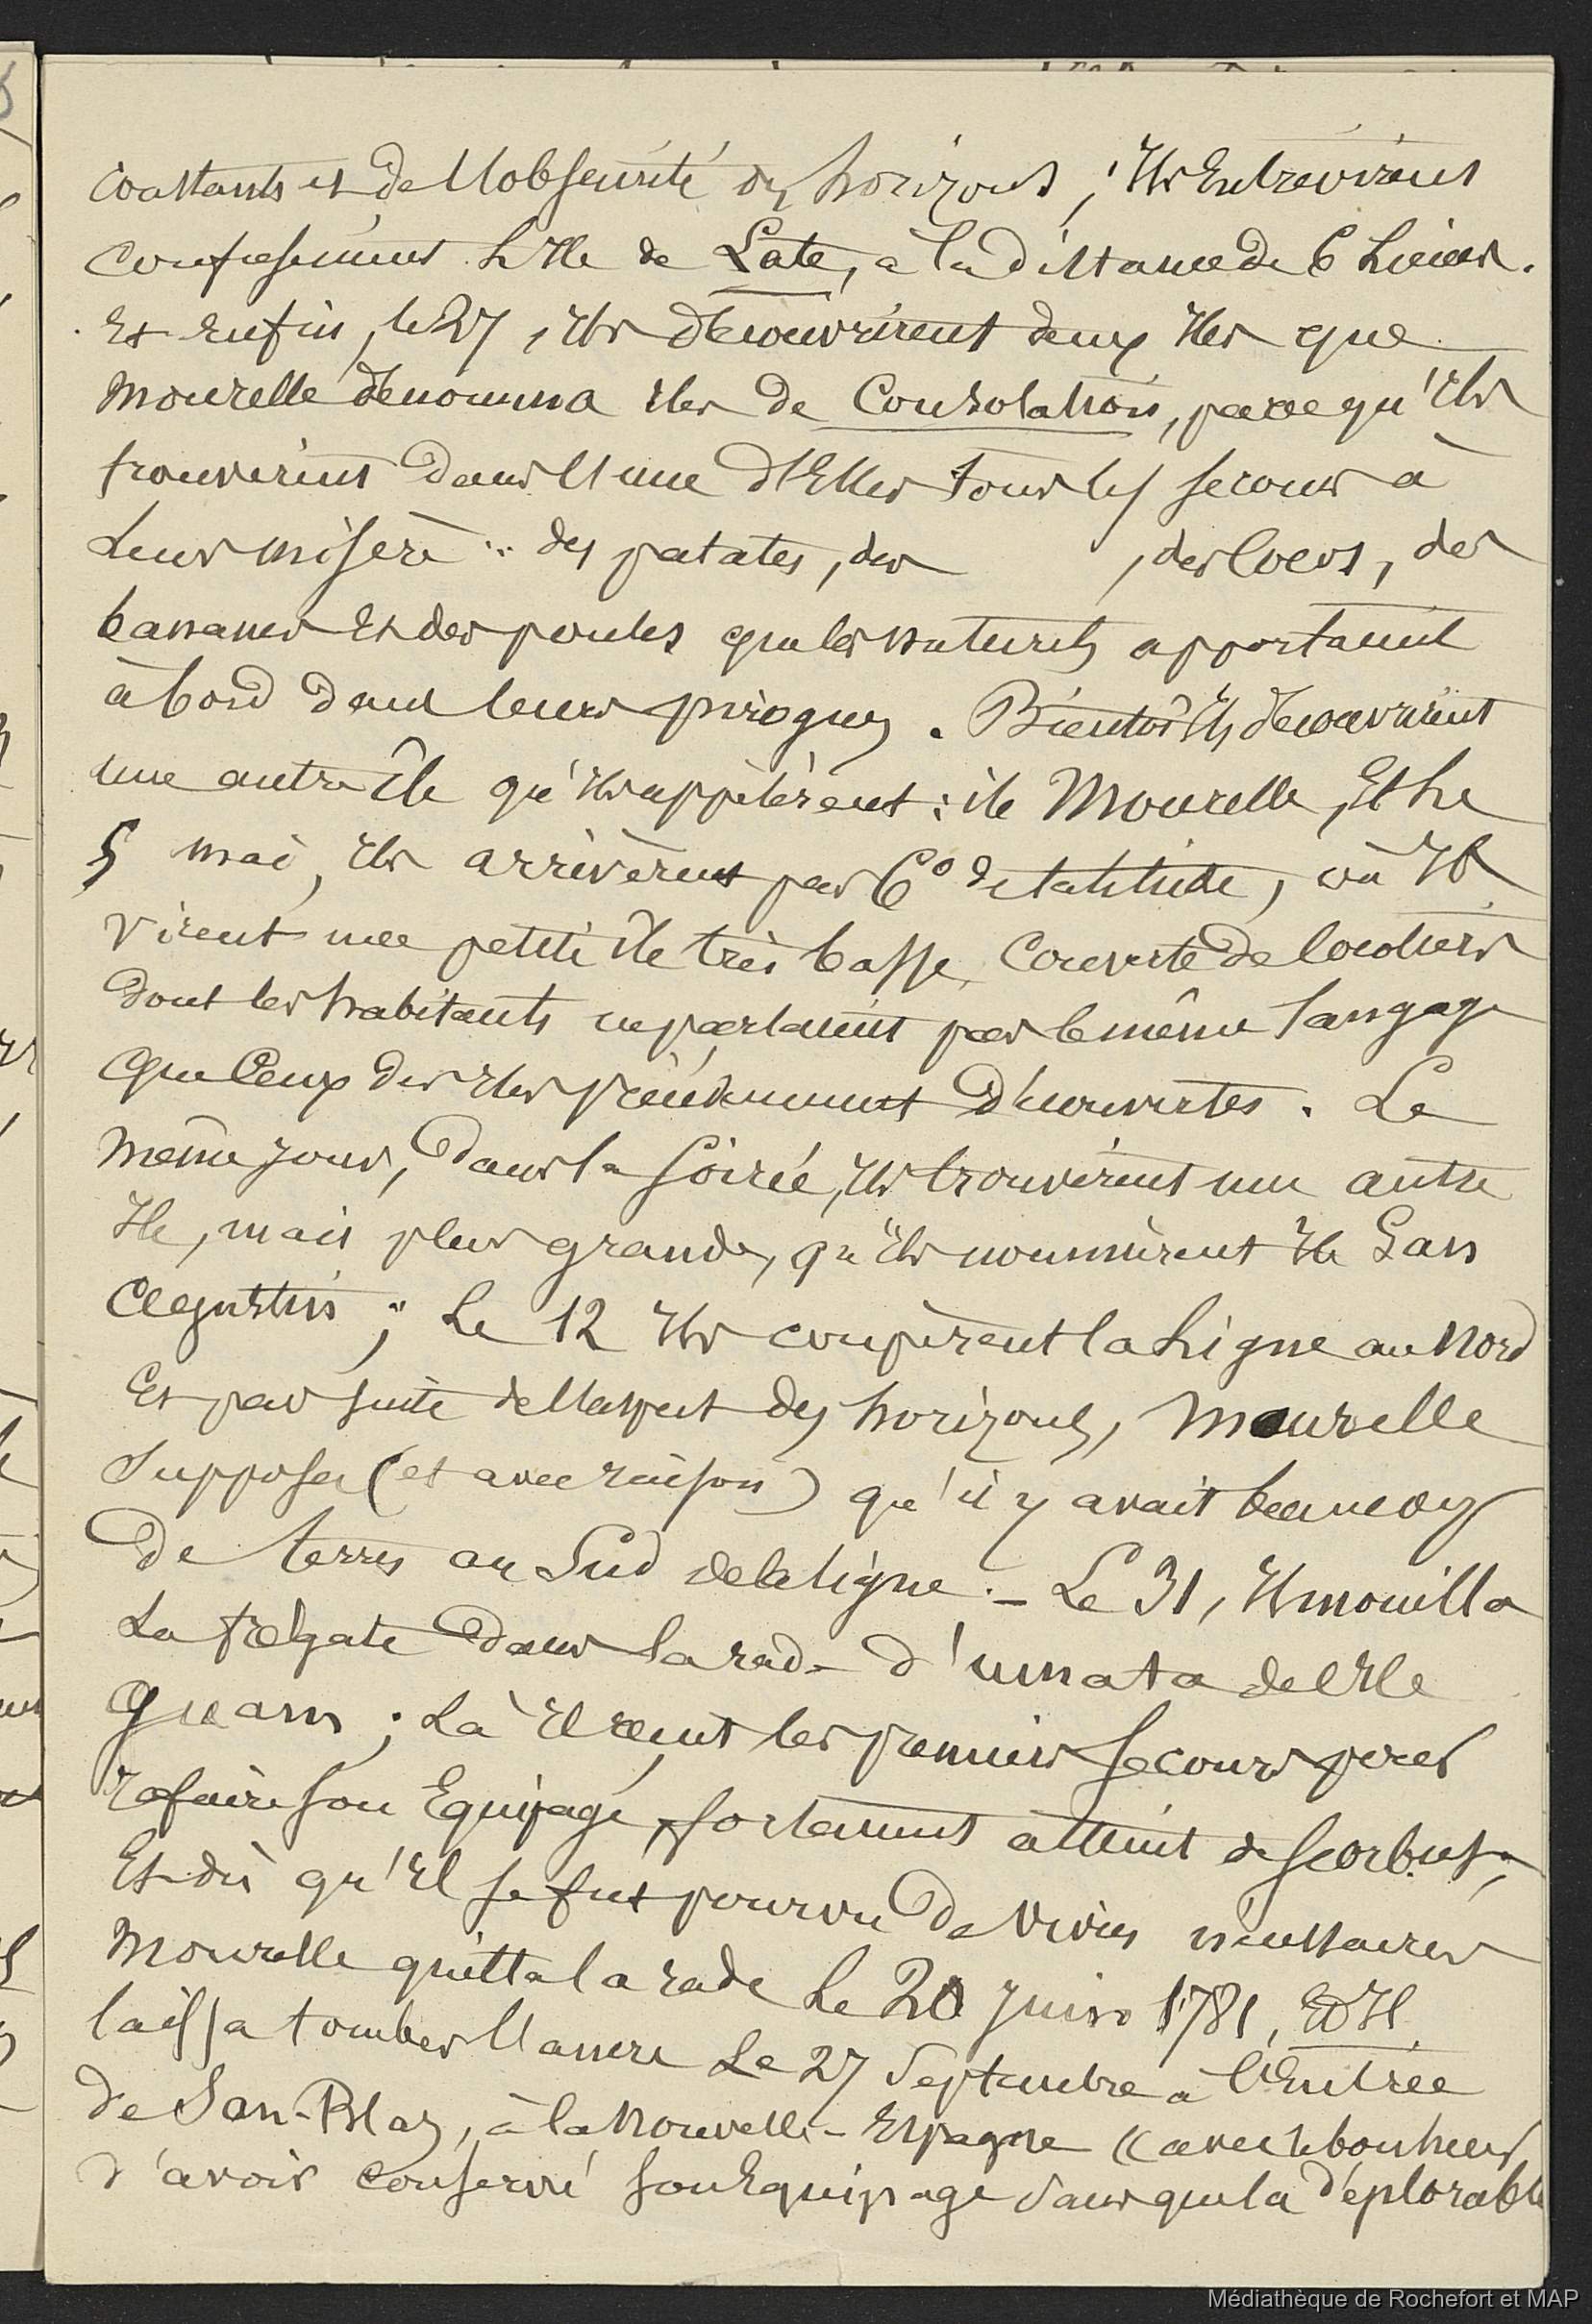 constants et de l'obscurité des horizons, ils entrevirent
confusément l'île de Late, à la distance de 6 lieues.
Et enfin, le 27, ils découvrirent deux îles que
Mourelle dénomma îles de Consolation, parce qu'ils
trouvèrent dans l'une d'Elles tous les secours à
leur misère : des patates, des , des cocos, des
bananes Et des poules que les naturels apportaient
à bord dans leurs pirogues. Bientôt ils découvrirent
une autre île qu'ils appelèrent : île Mourelle, Et le
5 mai, ils arrivèrent par 6° de latitude, où ils
virent une petite île très basse, couverte de cocotiers
dont les habitants ne parlaient pas le même langage
que ceux des îles précédemment découvertes. Le
même jour, dans la soirée, ils trouvèrent une autre
île, mais plus grande, qu'ils nommèrent île San
Agustin ; Le 12 ils coupèrent la Ligne au Nord
Et par suite de l'aspect des horizons, Mourelle
supposa (et avec raison) qu'il y avait beaucoup
De terres au Sud de la ligne. - Le 31, Il mouilla
La frégate dans la rade d'Umata de l'île
Guam ; Là Il reçut les premiers secours pour
refaire son Equipage, fortement atteint de scorbut,
Et dès qu'Il se fut pourvu de vivres nécessaires
Mourelle quitta la rade le 20 juin 1781, Et Il
laissa tomber l'ancre Le 27 Septembre à l'Entrée
de San-Blas, à la Nouvelle-Espagne (avec le bonheur
d'avoir conservé son Equipage sans que la déplorable
Médiathèque de Rochefort et MAP